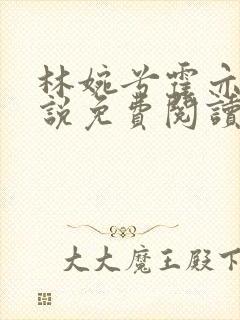 林婉兮霍亦
說免費閱讀
大大魔王殿下